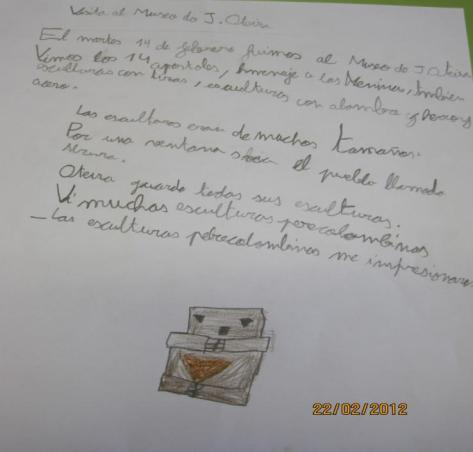 Visita al Museo do J. Oteiza
El martes 14 de febrero fuimos al Museo de J Oteiza
Vimos los 14 apostoles, homenaje a las Meninas, también
esculturas con tizas, esculturas con alambre y
acero.
Las esculturas eran de muchos tamaños.
Por una ventana se el pueblo llamado
Alzuza.
Oteiza guardo todas sus esculturas.
Vi muchas esculturas precolombinas
- Las esculturas precolombinas me impresionaron
22/02/2012